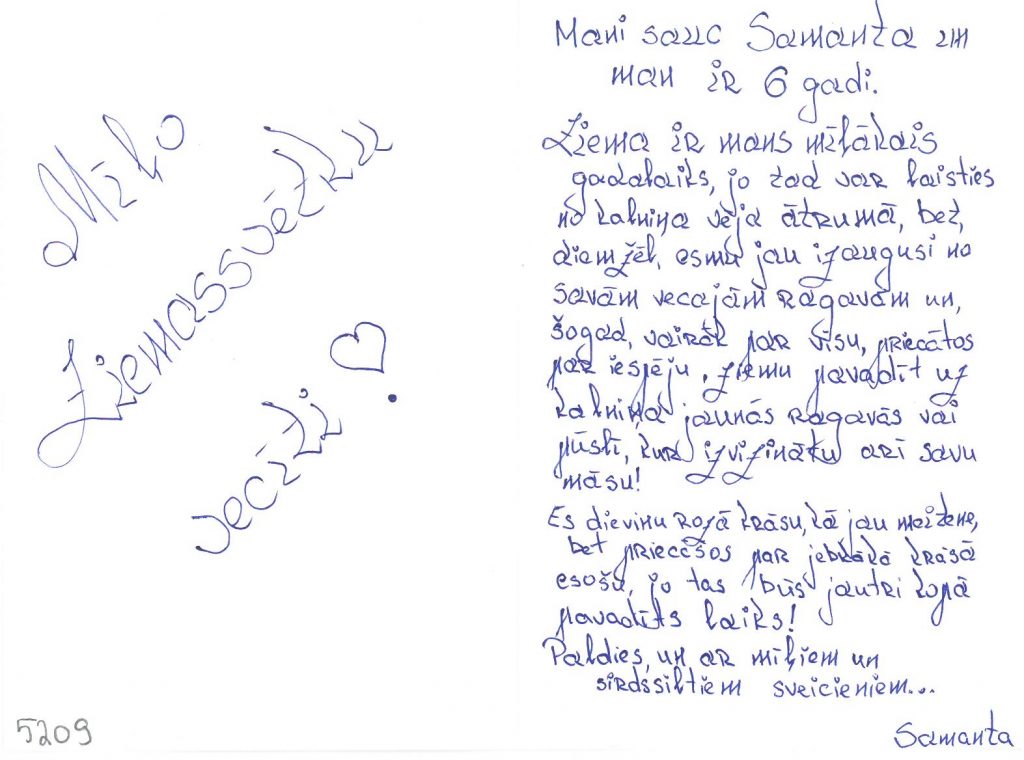 Mīļo
Ziemassvētku
vecīti ♡.
5209
Mani sauc Samanta un
man ir 6 gadi.
Ziema ir mans mīļākais
gadalaiks, jo tad var laisties
no kalniņa vēja ātrumā, bet,
diemžēl, esmu jau izaugusi no
savām vecajām ragavām un,
šogad, vairāk par visu, priecātos
par iespēju, ziemu pavadīt uz
kalniņa jaunās ragavās vai
pūslī, kur izvizinātu arī savu
māsu!
Es dievinu rozā krāsu, kā jau meitene,
bet priecēšos par jebkākā krāsā
esošu, jo tas būs jautri kopā
pavadīts laiks!
Paldies, un ar mīļiem un
sirdssiltiem sveicieniem...
Samanta